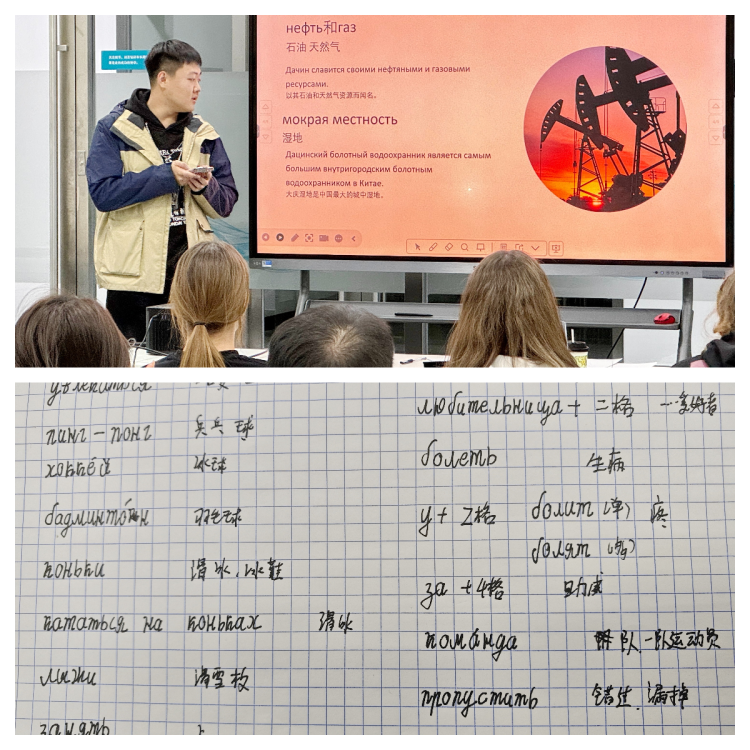 нефть和газ
石油 天然气
Дачин славится своими нефтяными и газовыми
ресурсами.
以其石油和天然气资源而闻名。
мокрая местность
湿地
Дацинский болотный водоохранник является самым
большим внутригородским болотным
водоохранником в Китае.
大庆湿地是中国最大的城中湿地。
увлекаться
пинг-понг 乒乓球
хоккей 冰球
бадминтон 羽毛球
коньки 滑冰,冰鞋
кататься на коньках 滑冰
лыжи 滑雪板
занять
любительница + 二格 一爱好者
болеть 生病
у + 2格 болит(单) 疼
болят
за + 4格 助威
команда 队,一队运动员
пропустить 错过,漏掉